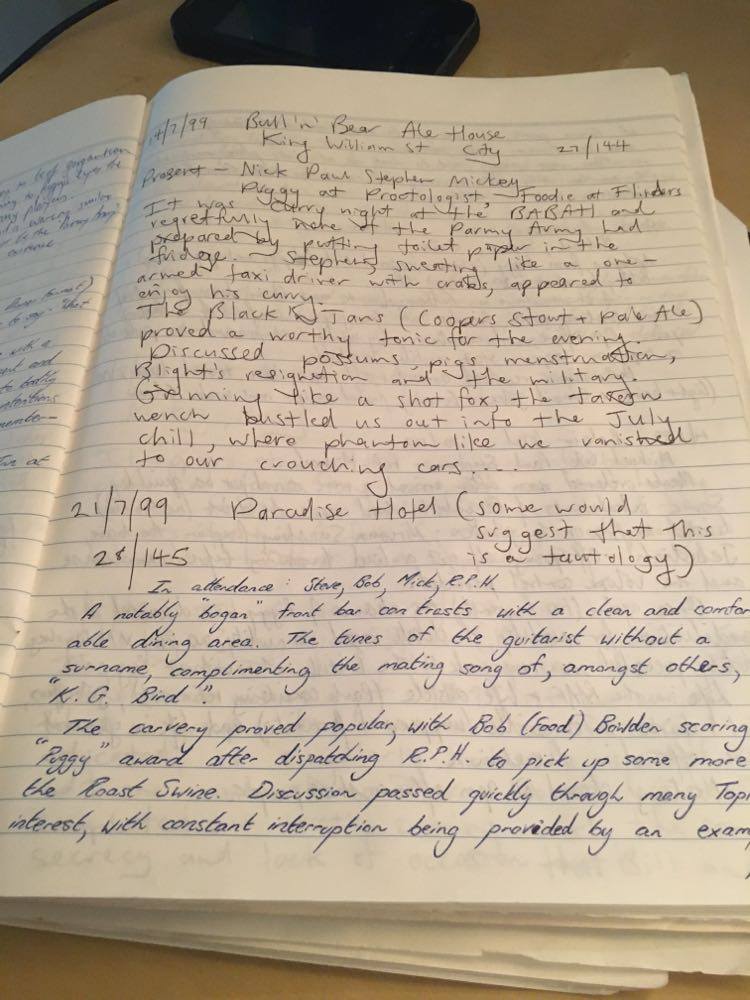 to beg gargantuan
14/7/99 Bull 'n' Bear Ale House
King William St City 27/144
Present – Nick Paul Stephen Mickey
Piggy at Proctologist, Foodie at Flinders
It was curry night at the BABAH and
regretfully none of the Parmy Army had
prepared by putting toilet paper in the
fridge. – Stephen, sweating like a one-
armed taxi driver with crabs, appeared to
enjoy his curry.
The Black & Tans (Coopers Stout + Pale Ale)
proved a worthy tonic for the evening.
Discussed possums, pigs, menstruation,
Blight's resignation and the military.
Grinning like a shot fox, the tavern
wench bustled us out into the July
chill, where phantom like we vanished
to our crouching cars....
21/7/99 Paradise Hotel (some would
suggest that this
28/145 is a tautology)
In attendance: Steve, Bob, Mick, R.P.H.
A notably "bogan" front bar contrasts with a clean and comfor
able dining area. The tunes of the guitarist without a
surname, complimenting the mating song of, amongst others,
"K.G. Bird".
The carvery proved popular, with Bob (food) Bowden scoring
"Piggy" award after dispatching R.P.H. to pick up some more
the Roast Swine. Discussion passed quickly through many Topi
interest, with constant interruption being provided by an exam